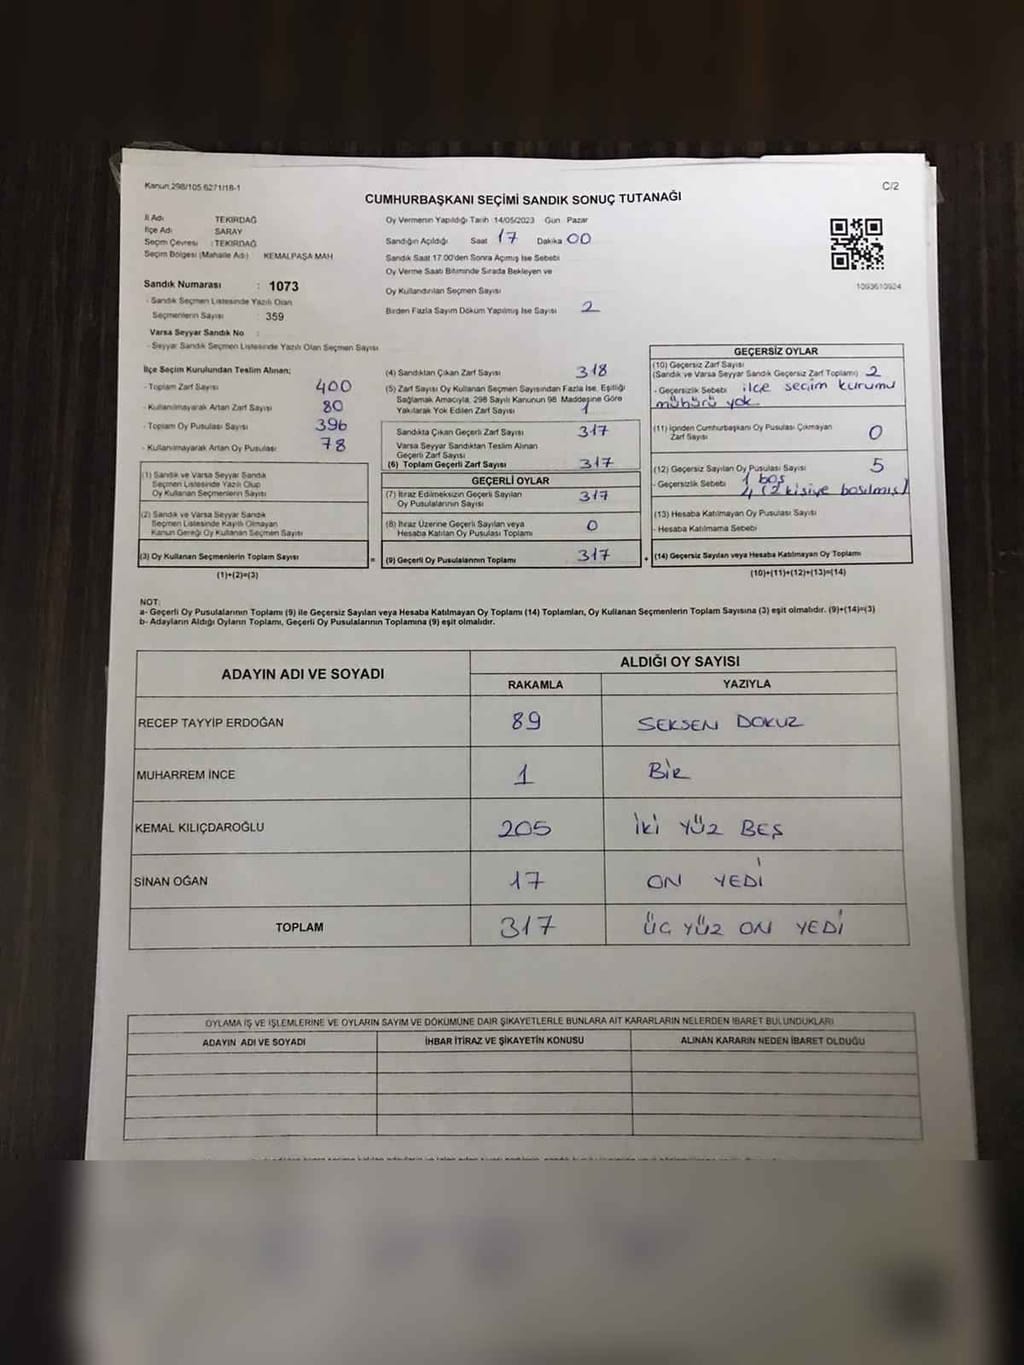 Kanun:298/105 6271/18-1
C/2
CUMHURBAŞKANI SEÇİMİ SANDIK SONUÇ TUTANAĞI
İl Adı TEKİRDAĞ
İlçe Adı SARAY
Seçim Çevresi : TEKİRDAĞ
Seçim Bölgesi (Mahalle Adı) KEMALPAŞA MAH
Sandık Numarası : 1073
- Sandık Seçmen Listesinde Yazılı Olan
Seçmenlerin Sayısı : 359
Varsa Seyyar Sandık No :
- Seyyar Sandık Seçmen Listesinde Yazılı Olan Seçmen Sayısı
Oy Vermenin Yapıldığı Tarih 14/05/2023 Gün Pazar
Sandığın Açıldığı Saat 17 Dakika 00
Sandık Saat 17.00'den Sonra Açımış İse Sebebi
Oy Verme Saati Bitiminde Sırada Bekleyen ve
Oy Kullandırılan Seçmen Sayısı
Birden Fazla Sayım Döküm Yapılmış İse Sayısı 2
1093610924
İlçe Seçim Kurulundan Teslim Alınan;
- Toplam Zarf Sayısı 400
- Kullanılmayarak Artan Zarf Sayısı 80
- Toplam Oy Pusulası Sayısı 396
- Kullanılmayarak Artan Oy Pusulası 78
(1) Sandık ve Varsa Seyyar Sandık
Seçmen Listesinde Yazılı Olup
Oy Kullanan Seçmenlerin Sayısı
(2) Sandık ve Varsa Seyyar Sandık
Seçmen Listesinde Kayıtlı Olmayan
Kanun Gereği Oy Kullanan Seçmen Sayısı
(3) Oy Kullanan Seçmenlerin Toplam Sayısı =
(1)+(2)=(3)
(4) Sandıktan Çıkan Zarf Sayısı 318
(5) Zarf Sayısı Oy Kullanan Seçmen Sayısından Fazla İse, Eşitliği
Sağlamak Amacıyla, 298 Sayılı Kanunun 98. Maddesine Göre
Yakılarak Yok Edilen Zarf Sayısı 1
Sandıkta Çıkan Geçerli Zarf Sayısı 317
Varsa Seyyar Sandıktan Teslim Alınan
Geçerli Zarf Sayısı
(6) Toplam Geçerli Zarf Sayısı 317
GEÇERLİ OYLAR
(7) İtiraz Edilmeksizin Geçerli Sayılan
Oy Pusulalarının Sayısı 317
(8) İtiraz Üzerine Geçerli Sayılan veya
Hesaba Katılan Oy Pusulası Toplamı 0
(9) Geçerli Oy Pusulalarının Toplamı 317 +
GEÇERSİZ OYLAR
(10) Geçersiz Zarf Sayısı
(Sandık ve Varsa Seyyar Sandık Geçersiz Zarf Toplamı) 2
- Geçersizlik Sebebi ilçe seçim kurumu
mühürü yok
(11) İçinden Cumhurbaşkanı Oy Pusulası Çıkmayan
Zarf Sayısı 0
(12) Geçersiz Sayılan Oy Pusulası Sayısı 5
- Geçersizlik Sebebi 1 boş
4 (2 kişiye basılmış)
(13) Hesaba Katılmayan Oy Pusulası Sayısı
- Hesaba Katılmama Sebebi
(14) Geçersiz Sayılan veya Hesaba Katılmayan Oy Toplamı
(10)+(11)+(12)+(13)=(14)
NOT:
a- Geçerli Oy Pusulalarının Toplamı (9) ile Geçersiz Sayılan veya Hesaba Katılmayan Oy Toplamı (14) Toplamları, Oy Kullanan Seçmenlerin Toplam Sayısına (3) eşit olmalıdır. (9)+(14)=(3)
b- Adayların Aldığı Oyların Toplamı, Geçerli Oy Pusulalarının Toplamına (9) eşit olmalıdır.
ADAYIN ADI VE SOYADI
ALDIĞI OY SAYISI
RAKAMLA YAZIYLA
RECEP TAYYİP ERDOĞAN 89 SEKSEN DOKUZ
MUHARREM İNCE 1 BİR
KEMAL KILIÇDAROĞLU 205 İKİ YÜZ BEŞ
SİNAN OĞAN 17 ON YEDİ
TOPLAM 317 ÜÇ YÜZ ON YEDİ
OYLAMA İŞ VE İŞLEMLERİNE VE OYLARIN SAYIM VE DÖKÜMÜNE DAİR ŞİKAYETLERLE BUNLARA AİT KARARLARIN NELERDEN İBARET BULUNDUKLARI
ADAYIN ADI VE SOYADI İHBAR İTİRAZ VE ŞİKAYETİN KONUSU ALINAN KARARIN NEDEN İBARET OLDUĞU